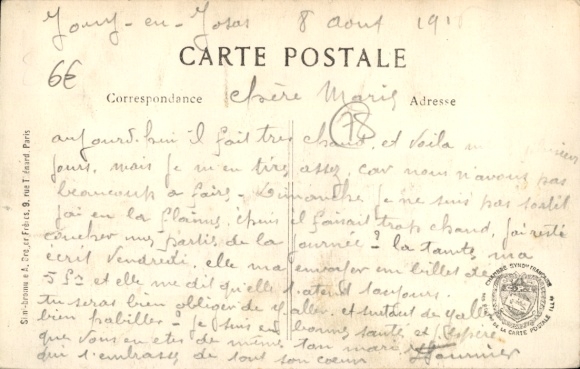 Jouy-en-Josas 8 aout 191
CARTE POSTALE
6€
Correspondance
Chère Marie
Adresse
78
aujourd'hui il fait tres chaud, et voila
jours, mais je m'en tire assez, car nous n'avons pas
beaucoup a faire - Dimanche je ne suis pas sortit
j'ai eu la flaime, puis il faisait trop chaud, j'ai resté
coucher une partie de la journée la tante, ma
écrit Vendredi, elle ma envoyer un billet de
5 frs et elle me dit qu'elle t'atend toujours.
tu seras bien obliger de y aller et surtout de y aller
bien habiller je suis en bonne santé et j'espère
que vous en etes de même ton mari
qui t'embrasse de tout son coeur
Simi-bromure A. Breger Frères, 9, rue Thénard, Paris
CHAMBRE SYND^LE FRANÇAISE
DE LA CARTE POSTALE ILL^ée